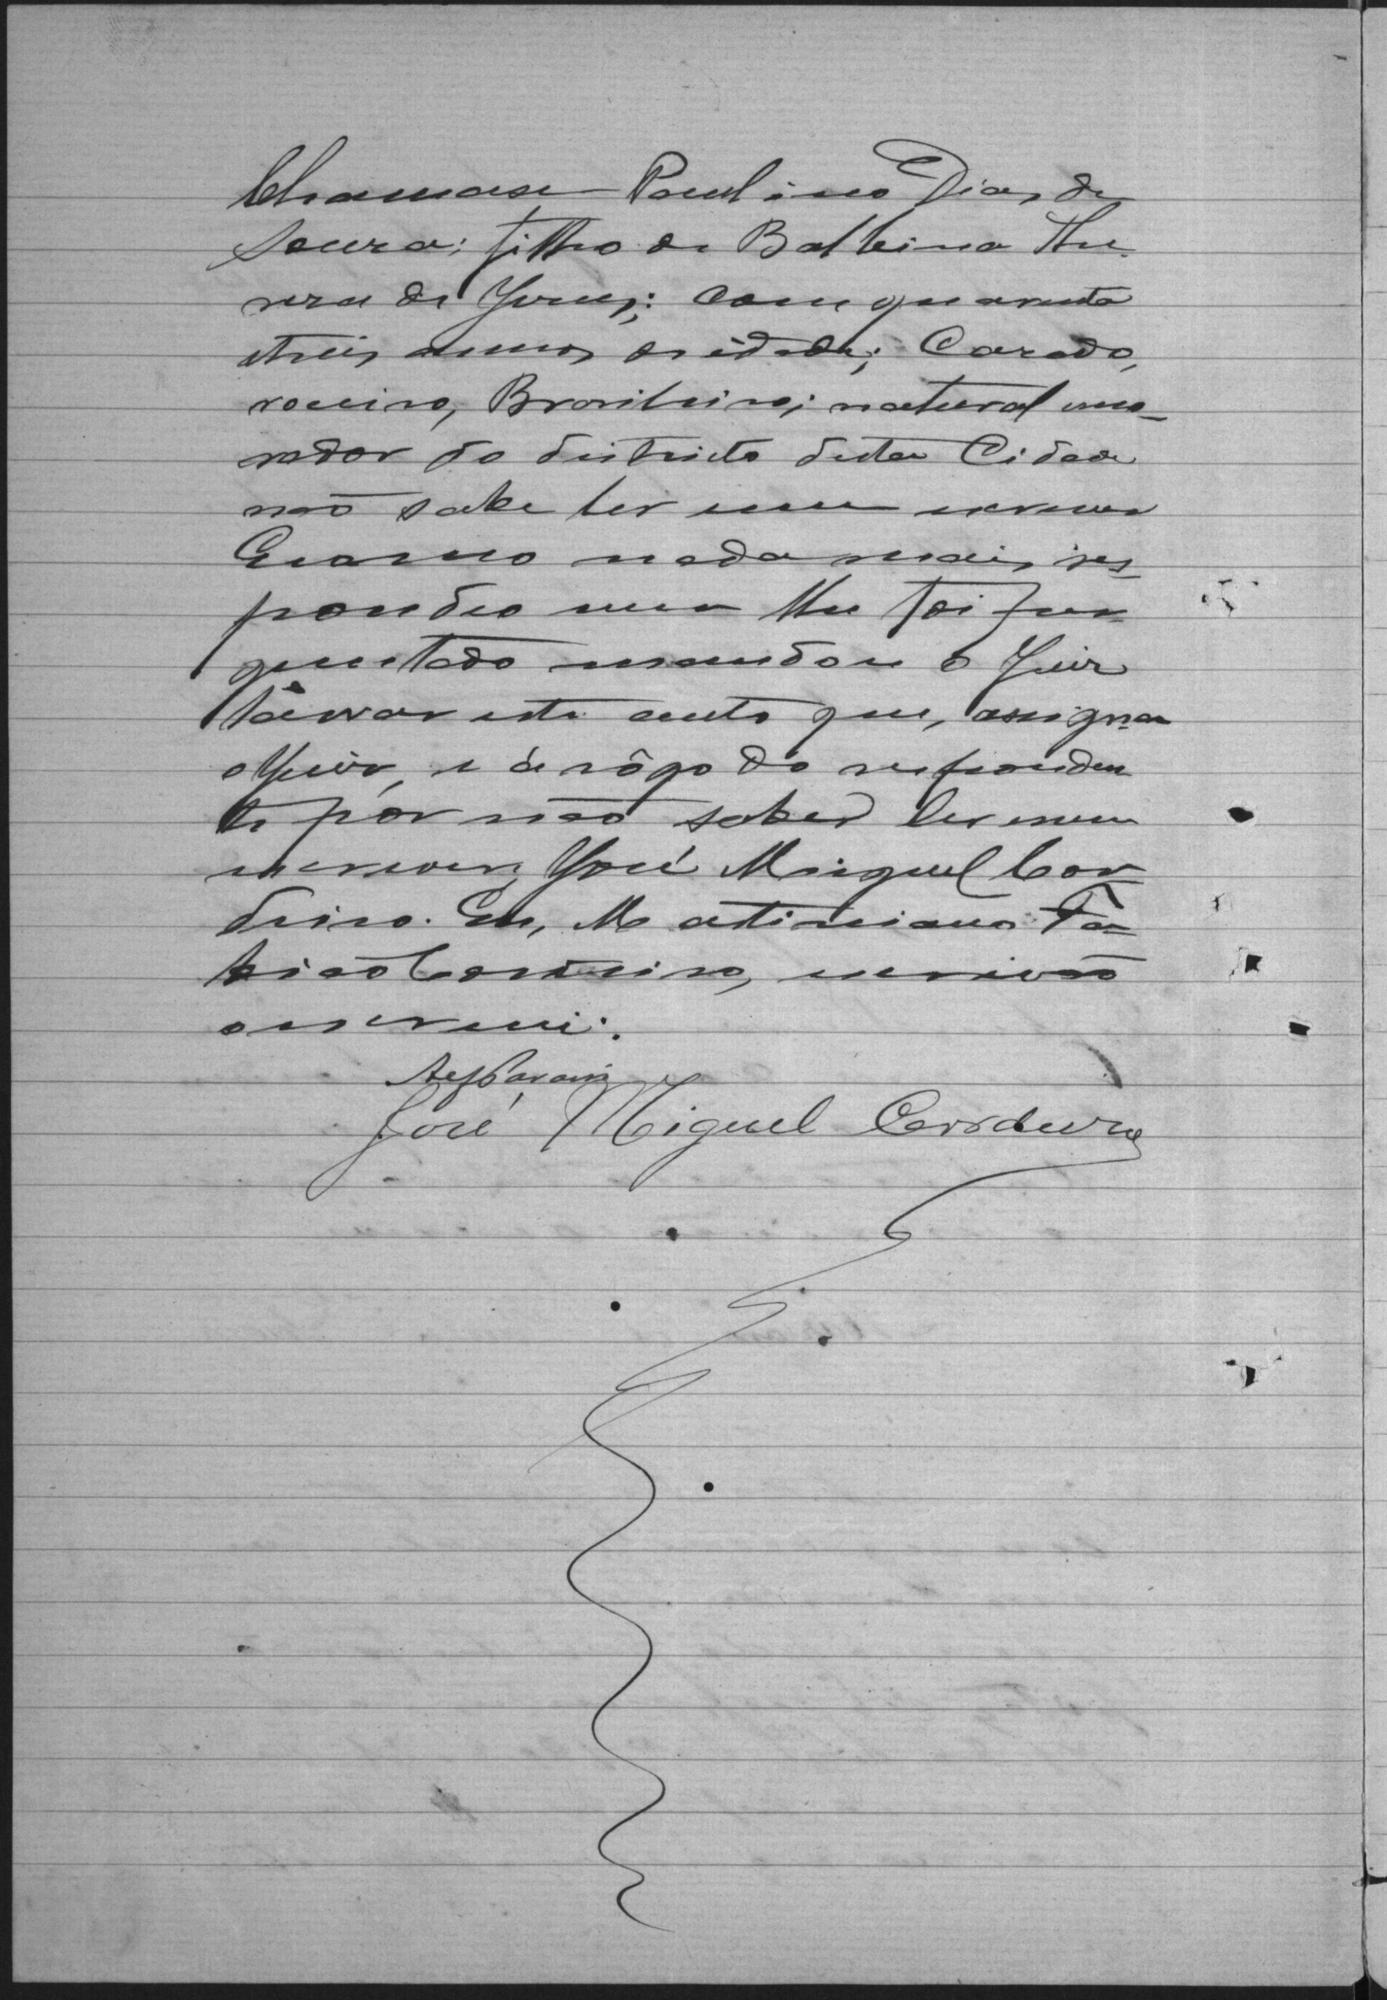 Chamase Paulino Dias de
Souza; filho de Balbina The
reza de Jesus; com quarenta
etreis annos de idade; Cazado,
roceiro, Brazileiro; natural mo-
rador do districto desta Cidade
não sabe ler nem escrever
E como nada mais res-
pondeo nem lhe foi per
guntado mandou o Juiz
lavrar este auto que, assigna
o Juiz, e á rôgo do responden
te por não saber ler nem
escrever, José Miguel Cor-
deiro. Eu, Maximiano Fa-
bião Cordeiro, escrivão
o escrevi.
José Miguel Cordeiro